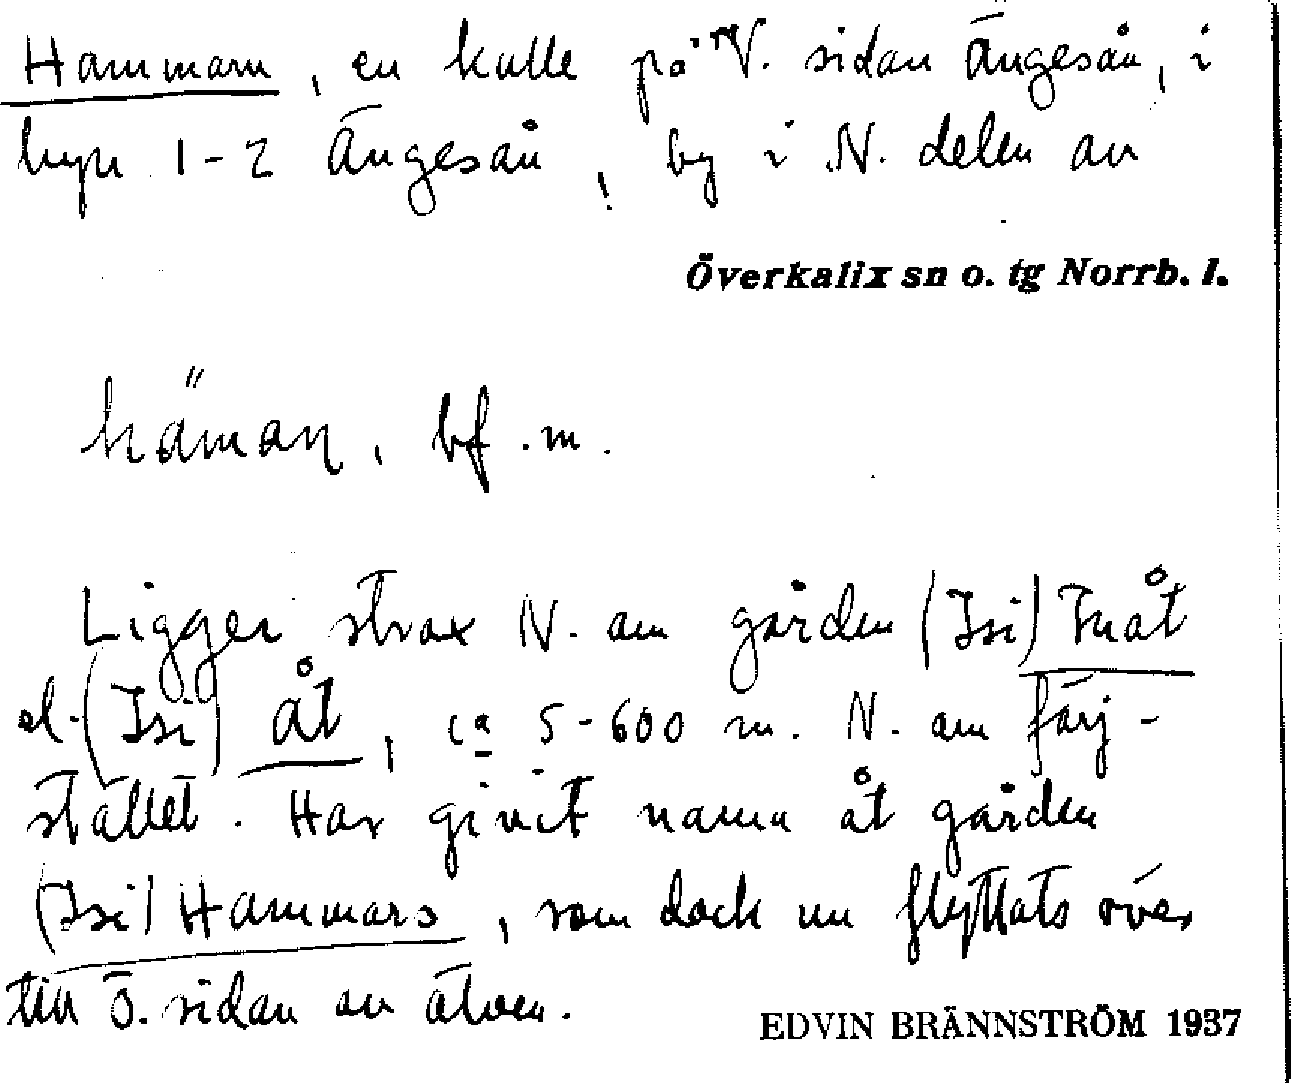 Hammarn, en kulle på V. sidan Ängesån, i
byn 1-2 Ängesån, by i N. delen av
Överkalix sn o. tg Norrb. l.
bf. m.
Ligger strax N. om gården (Isi) Tuåt
el. (Isi) åt, ca 5-600 m. N. om färj-
stället. Har givit namn åt gården
(Isi) Hammars, som dock nu flyttats över
till ö. sidan av älven.
EDVIN BRÄNNSTRÖM 1937